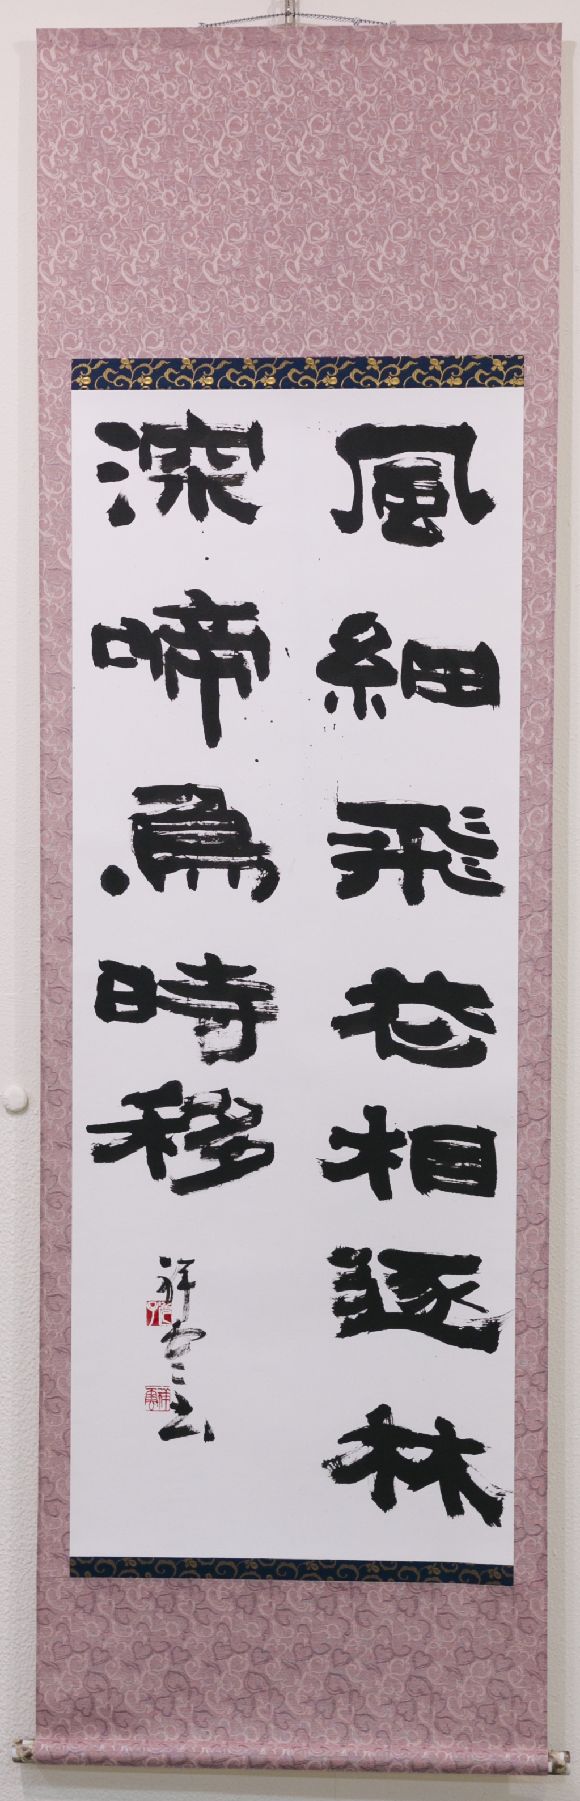 風細飛花相逐林
深啼鳥時移
祥雲書